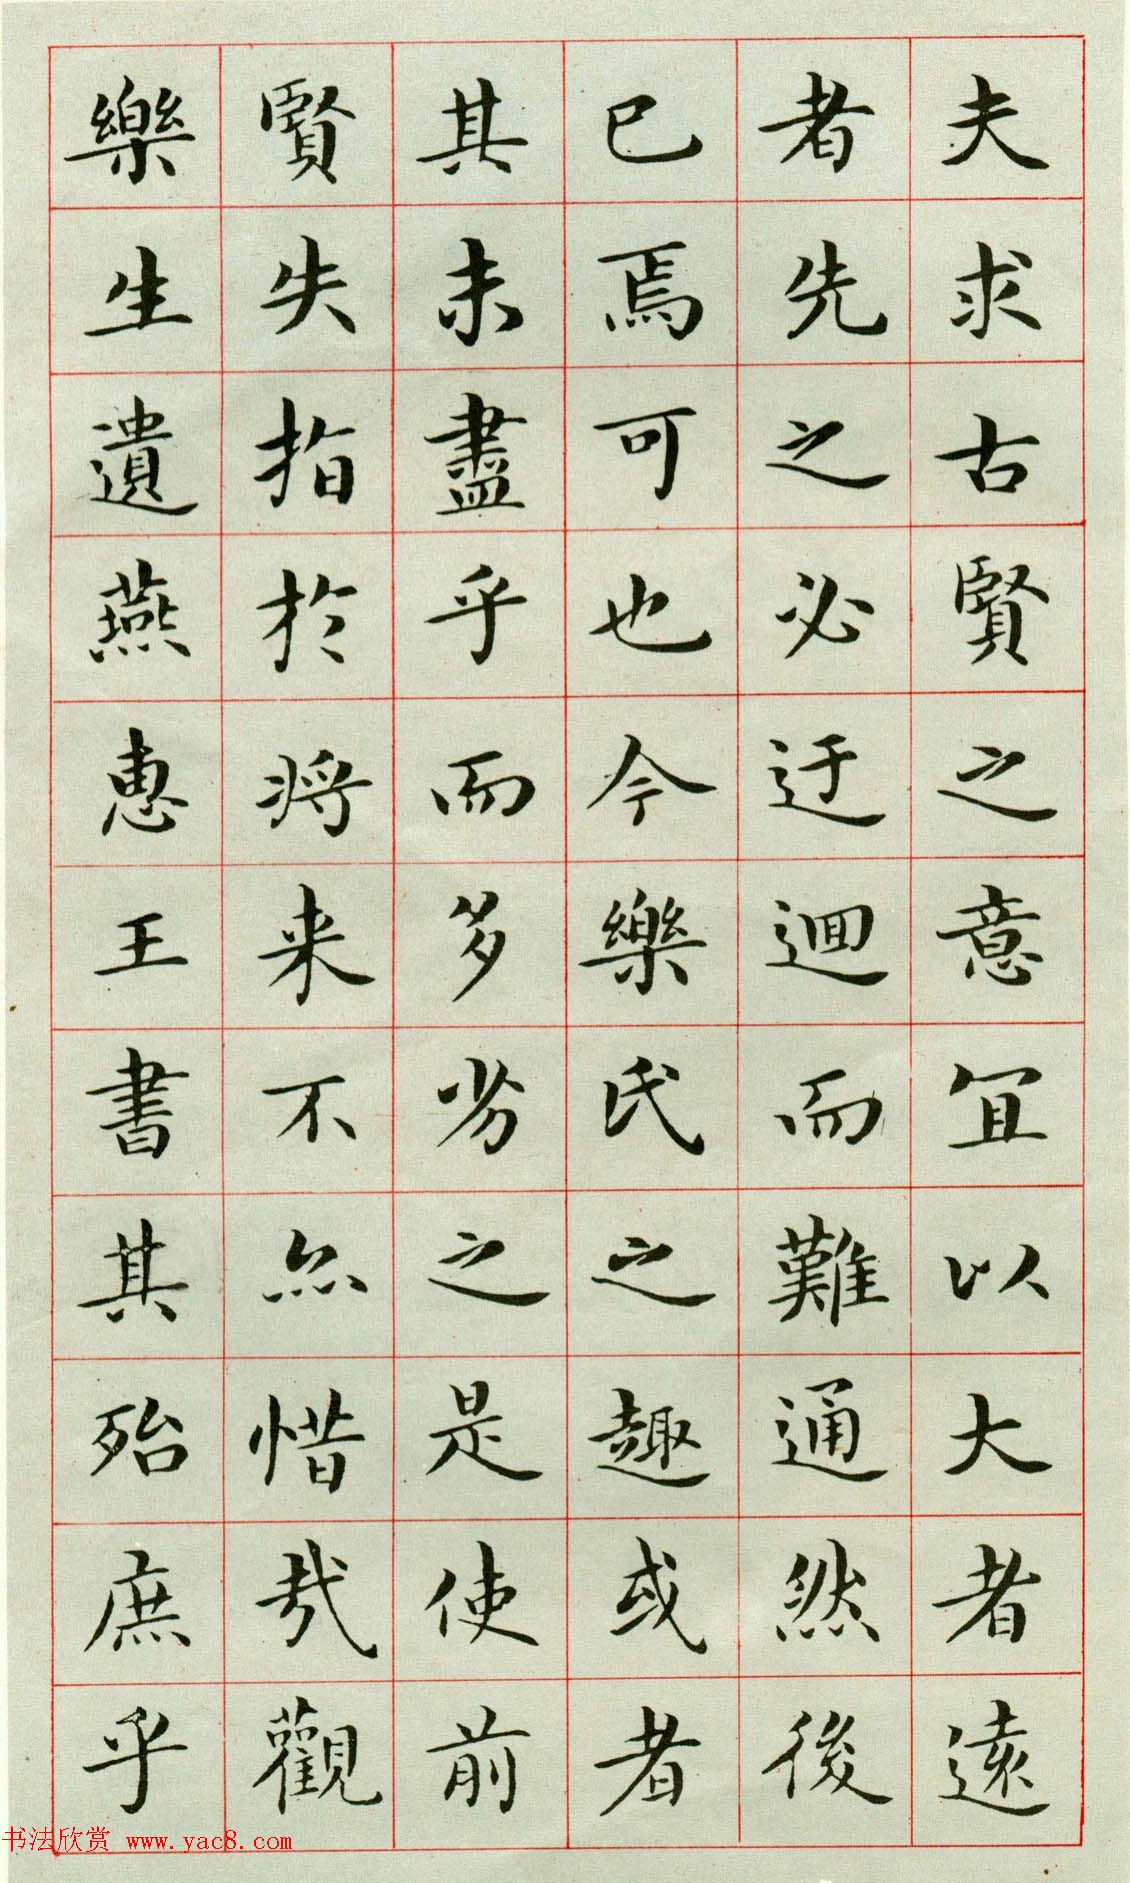 夫求古賢之意冝以大者遠
者先之必迂迴而難通然後
已焉可也今樂氏之趣或者
其未盡乎而多劣之是使前
賢失指於将来不尒惜㦲觀
樂生遺燕惠王書其殆庶乎
书法欣赏 www.yac8.com